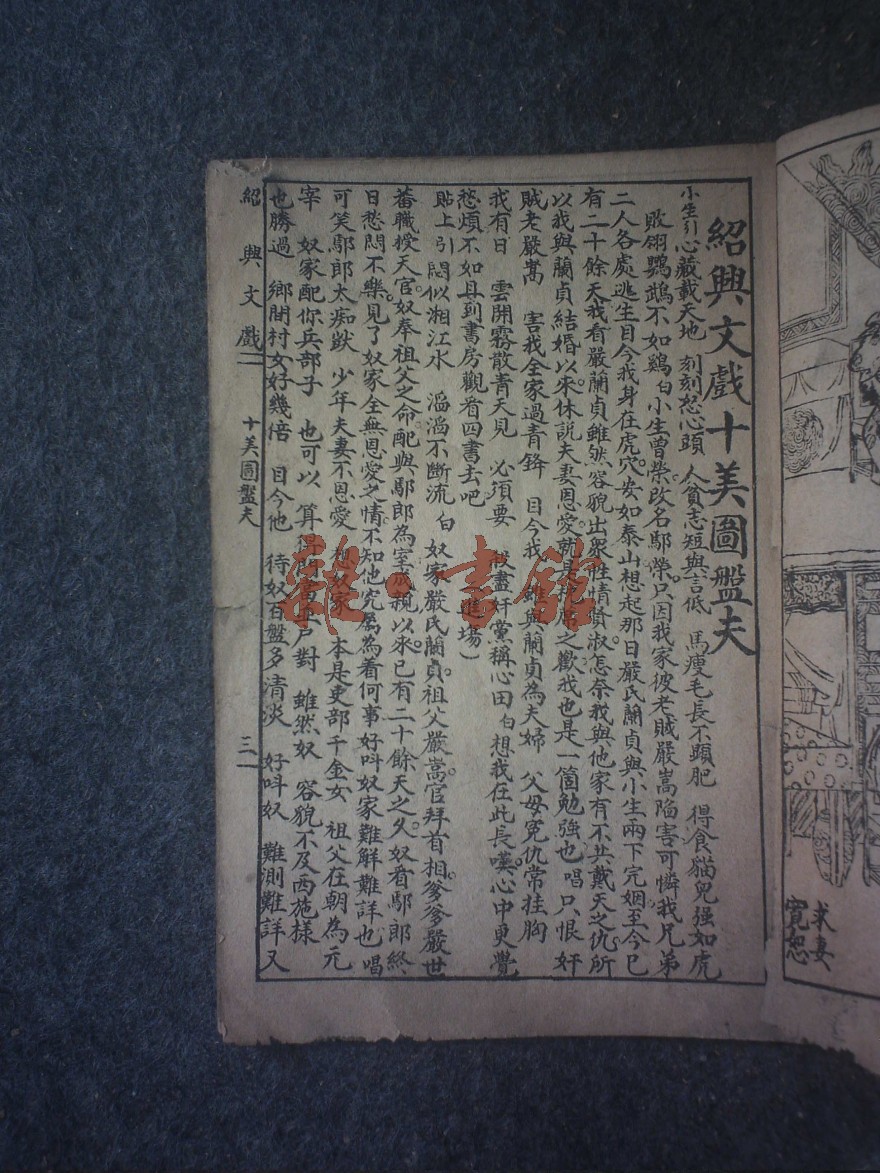 紹興文戲十美圖盤夫
小生引心藏載天地 刻刻恕心頭 人貧志短與言低 馬瘦毛長不顕肥 得食貓兒强如虎
敗翎鸚鵡不如鷄白小生曾榮改名鄢榮只因我家彼老賊嚴嵩陷害可憐我兄弟
二人各處逃生目今我身在虎穴安如泰山想起那日嚴氏蘭貞與小生兩下完姻至今已
有二十餘天我看嚴蘭貞雖然容貌出衆性情賢淑怎奈我與他家有不共戴天之仇所
以我與蘭貞結婚以來休説夫妻恩愛就是 之歡我也是一箇勉強也唱 只恨奸
賊老嚴嵩 害我全家過青鋒 目今我 雖與蘭貞為夫婦 父母冤仇常挂胸
我有日 雲開霧散青天見 必須要 殺盡奸黨稱心田白想我在此長嘆心中更覺
愁煩不如且到書房觀看四書去吧 進場）
貼上引 悶似湘江水 滔滔不斷流 白 奴家嚴氏蘭貞祖父嚴嵩官拜首相爹爹嚴世
蕃職授天官奴奉祖父之命配與鄢郎為室成親以來已有二十餘天之久奴看鄢郎終
日愁悶不樂見了奴家全無恩愛之情不知他究属為着何事好呌奴家難解難詳也唱
可笑鄢郎太痴獃 少年夫妻不恩愛 想奴家 本是吏部千金女 祖父在朝為元
宰 奴家配你兵部子 也可以 算得門當户對 雖然奴 容貌不及西施樣
也勝過 鄉間村女好幾倍 目今他 待奴百盤多清淡 好呌奴 難測難詳又
紹興文戲 十美圖盤夫 三
求妻
寛恕
雜·書館